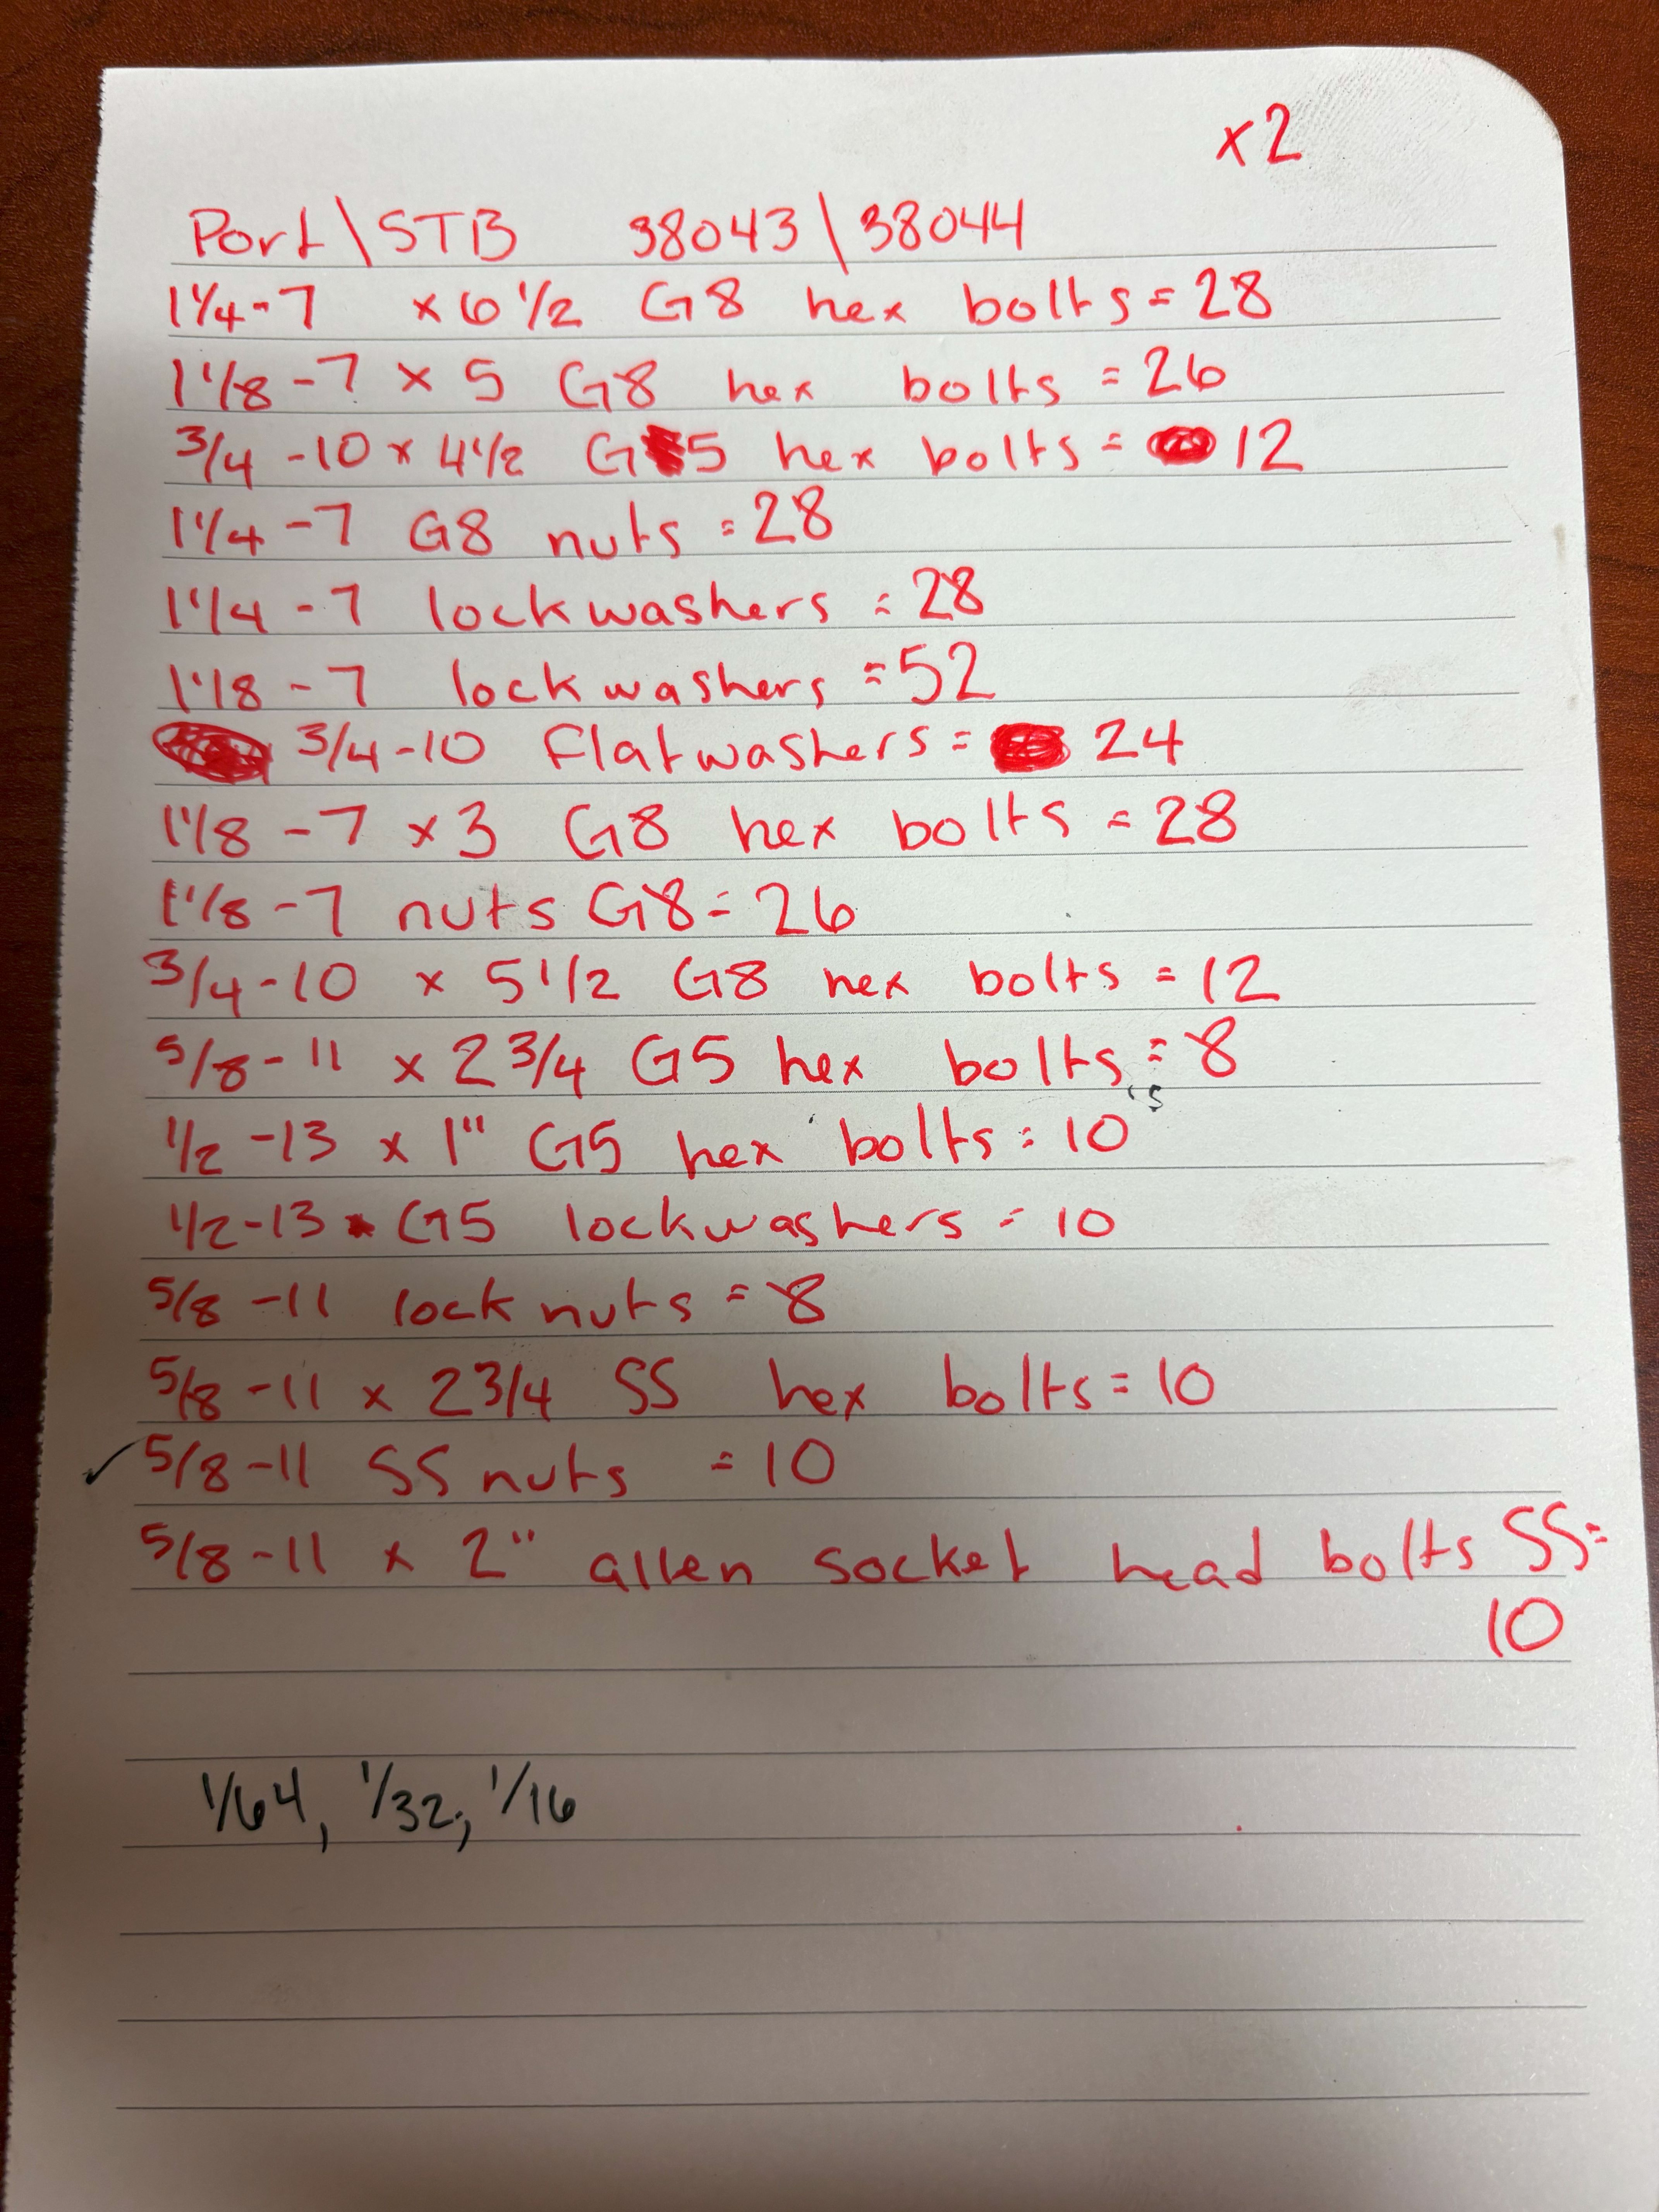 x2
Port\STB 38043\38044
1 1/4-7 x 6 1/2 G8 hex bolts = 28
1 1/8 -7 x 5 G8 hex bolts = 26
3/4 -10 x 4 1/2 G5 hex bolts = 12
1 1/4 -7 G8 nuts = 28
1 1/4 -7 lockwashers = 28
1 1/8 -7 lockwashers = 52
3/4-10 flatwashers = 24
1 1/8 -7 x 3 G8 hex bolts = 28
1 1/8 -7 nuts G8 = 26
3/4-10 x 5 1/2 G8 hex bolts = 12
5/8-11 x 2 3/4 G5 hex bolts = 8
1/2 -13 x 1" G5 hex bolts = 10
1/2-13 G5 lockwashers = 10
5/8 -11 lock nuts = 8
5/8 -11 x 2 3/4 SS hex bolts = 10
✓ 5/8-11 SS nuts = 10
5/8-11 x 2" allen socket head bolts SS =
10
1/64, 1/32, 1/16